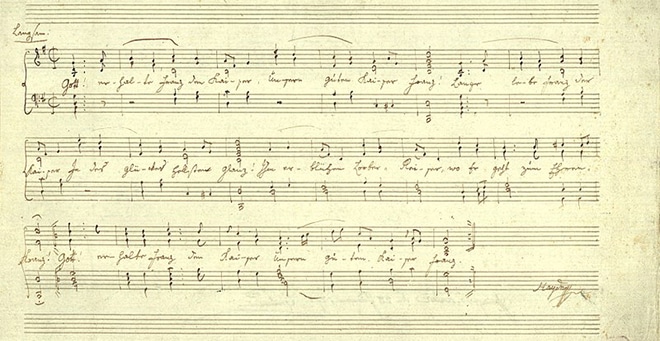 Langsam.
Gott! er-hal-te Franz den Kai-ser, Unsern guten Kai-ser Franz! Lange lebe Franz der
Kai-ser In des Glü-ckes hellsten Glanz! Ihm er-blühen Lorber-Rei-ser, wo Er geht zum Ehren-
Kranz! Gott! erhalte Franz den Kai-ser Unsern gu-ten Kai-ser Franz.
Haydn